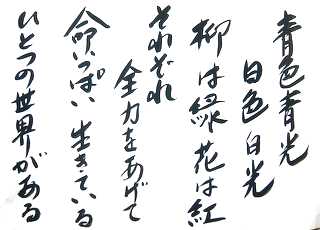 青色青光
白色白光
柳は緑花は紅
それぞれ
全力をあげて
命いっぱい生きている
ひとつの世界がある